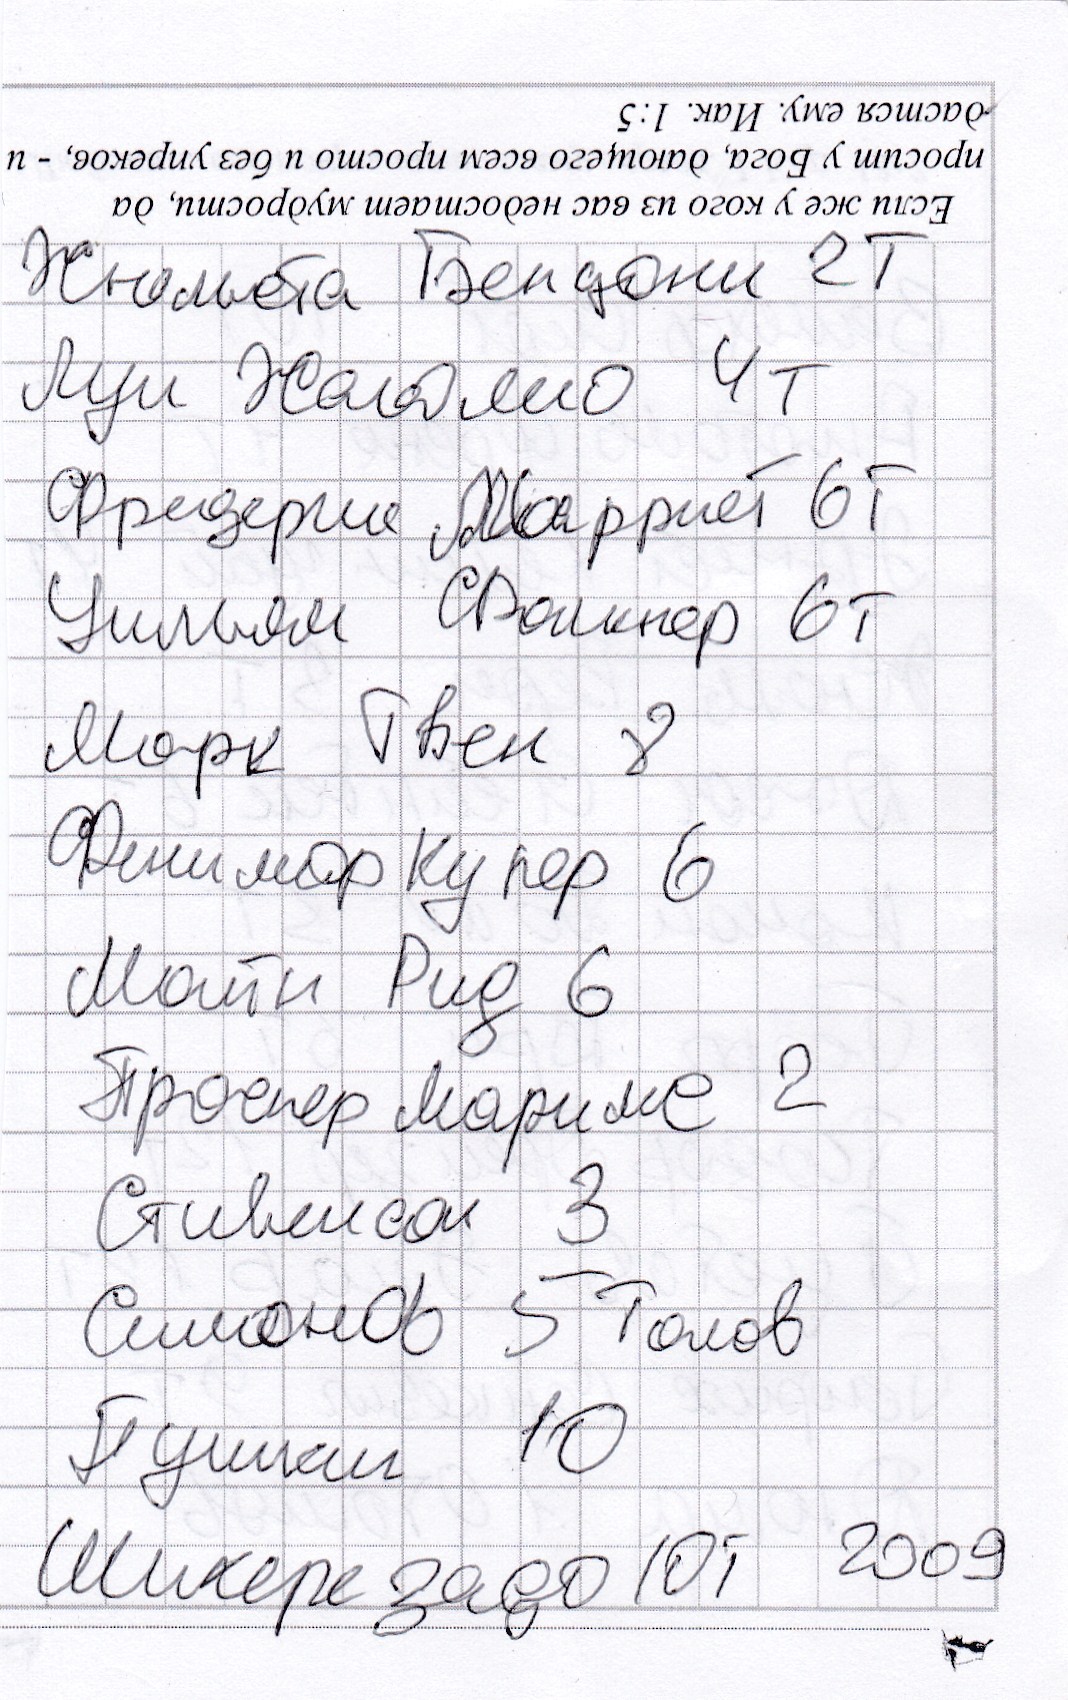 Если же у кого из вас недостает мудрости, да
просит у Бога, дающего всем просто и без упреков, - и
дастся ему. Иак. 1:5
Жюльета Бенцони 2Т
Луи Жаколио 4Т
Фредерик Марриет 6Т
Уильям Фолкнер 6т
Марк Твен 8
Фенимор Купер 6
Майн Рид 6
Проспер Мариме 2
Стивенсон 3
Симонов 5 Томов
Пушкин 10
Шихерезада 10Т 2009